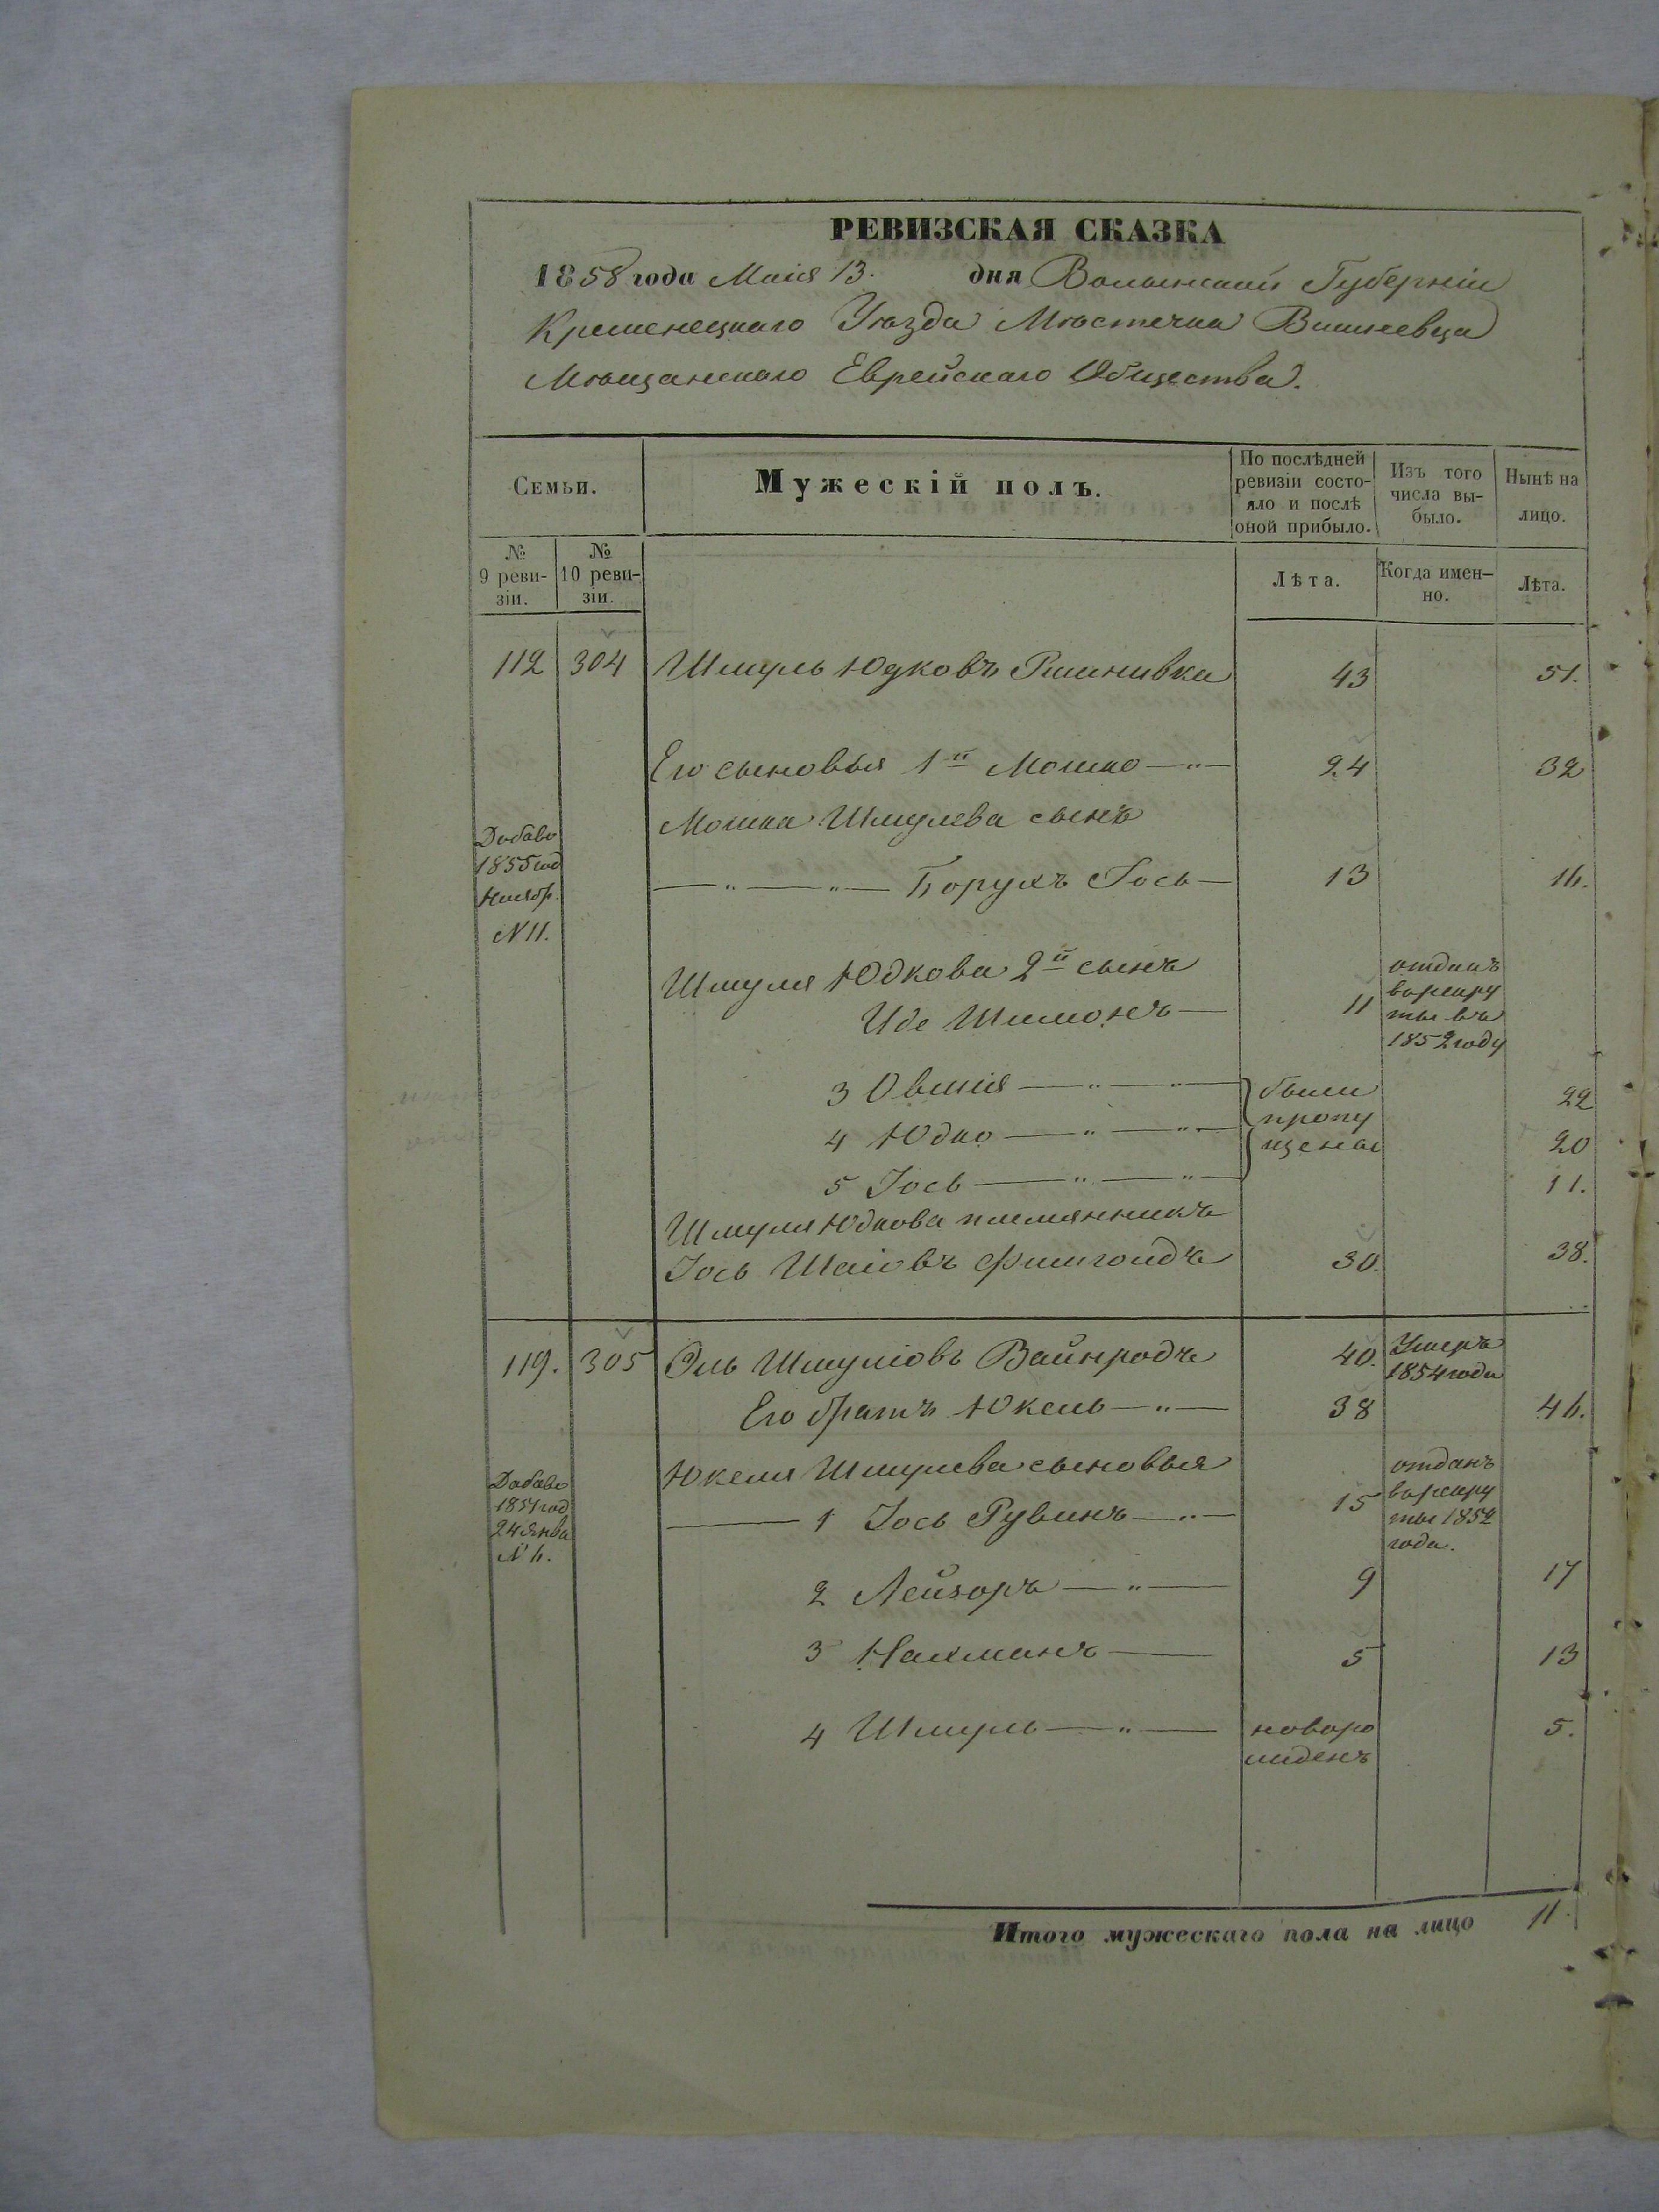 РЕВИЗСКАЯ СКАЗКА
1858 года Маія 13. дня Волынской Губерніи
Кременецкаго Уѣзда Мѣстечка Вишневца
Мѣщанскаго Еврейскаго Общества.
Семьи.
Мужескій полъ.
По послѣдней ревизіи состо-
яло и послѣ оной прибыло.
Изъ того числа вы-
было.
Нынѣ на лицо.
№ 9 реви-
зіи.
№ 10 реви-
зіи.
Лѣта.
Когда имен-
но.
Лѣта.
112 304 Шмуль Юдковъ 43 51.
Его сыновья 1й Мошко —"— 24 32
Мошка Шмулева сынъ
Добаво
1855 год
Ноябр.
N 11.
—"—"— Борухъ Іось — 13 16.
Шмуля Юдкова 2й сынъ
Иде Шимонъ — 11
отданъ
в рекру
ты въ
1852 году
3 Овшія —"—"— 22
4 Юдко —"—"— 20
5 Іось —"—"— 11.
были
пропу
щены
Шмуля Юдкова племянникъ
Іось Шаіовъ 30. 38.
119. 305 Эль Шмуліовъ Вайнродъ 40. Умеръ
1854 года
Его братъ Юкель —"— 38 46.
Юкеля Шмулева сыновья
Добаво
1854 год
24 Янва
N 6.
— 1 Іось Рувинъ —"— 15
отданъ
в рекру
ты 1852
года.
2 Лейзоръ —"— 9 17
3 Нахманъ — 5 13
4 Шмуль —"— новоро
жденъ 5.
Итого мужескаго пола на лицо 11.